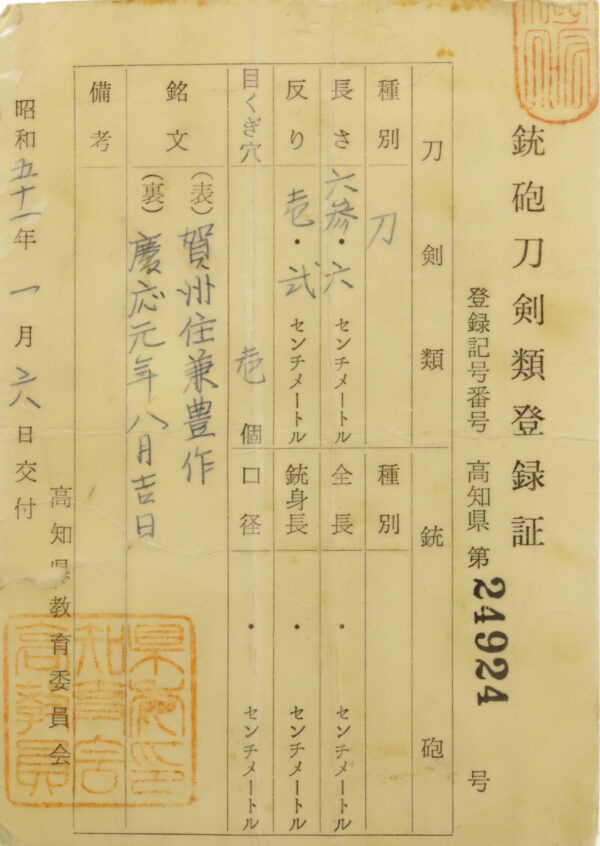 銃砲刀剣類登録証
登録記号番号 高知県 第 24924 号
刀剣類 銃砲
種別 刀 種別
長さ 六参・六 センチメートル 全長 ・ センチメートル
反り 壱・弐 センチメートル 銃身長 ・ センチメートル
目くぎ穴 壱 個 口径 ・ センチメートル
銘文 (表) 賀州住兼豊作
(裏) 慶応元年八月吉日
備考
昭和五十一年一月六日交付
高知県教育委員会